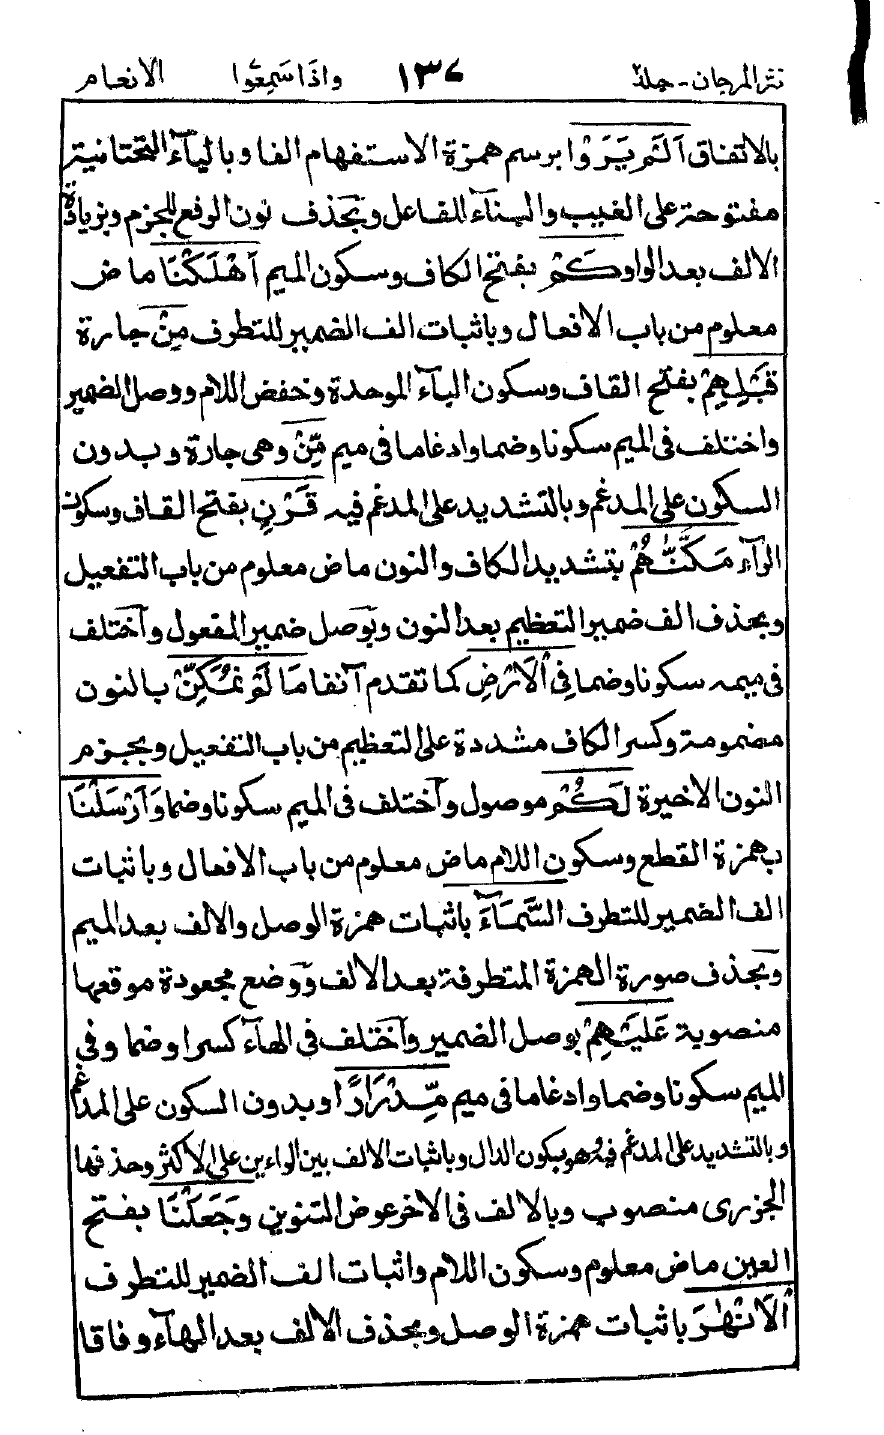 نثر المرجان - جلد٢ ١٣٧ واذا سَمِعُوا الانعام
بالاتفاق اَلَمْ يَرَوْا برسم همزة الاستفهام الفا وبالياۤء التحتانية
مفتوحة على الغيب والبناۤء للفاعل وبحذف نون الرفع للجزم وبزيادة
الالف بعد الواو كَمْ بفتح الكاف وسكون الميم اَهْلَكْنَا ماض
معلوم من باب الافعال وباثبات الف الضمير للتطرف مِنْ جارة
قَبْلِهِمْ بفتح القاف وسكون الباۤء الموحدة وخفض اللام ووصل الضمير
واختلف فى الميم سكونا وضما وادغاما فى ميم مِّنْ وهى جارة وبدون
السكون على المدغم وبالتشديد على المدغم فيه قَرْنٍ بفتح القاف وسكون
الراۤء مَكَّنّٰهُمْ بتشديد الكاف والنون ماض معلوم من باب التفعيل
وبحذف الف ضمير التعظيم بعد النون وبوصل ضمير المفعول واختلف
فى ميمه سكونا وضما فِى الْاَرْضِ كما تقدم آنفا مَا لَمْ نُمَكِّنْ بالنون
مضمومة وكسر الكاف مشددة على التعظيم من باب التفعيل وبجزم
النون الاخيرة لَكُمْ موصول واختلف فى الميم سكونا وضما وَاَرْسَلْنَا
بهمزة القطع وسكون اللام ماض معلوم من باب الافعال وباثبات
الف الضمير للتطرف السَّمَاۤءَ باثبات همزة الوصل والالف بعد الميم
وبحذف صورة الهمزة المتطرفة بعد الالف ووضع مجعودة موقعها
منصوبة عَلَيْهِمْ بوصل الضمير واختلف فى الهاۤء كسرا وضما وفى
الميم سكونا وضما وادغاما فى ميم مِّدْرَارًا وبدون السكون على المدغم
وبالتشديد على المدغم فيه وهو بسكون الدال وباثبات الالف بين الراءين على الاكثر وحذفها
الجزرى منصوب وبالالف فى الاخر عوض التنوين وَجَعَلْنَا بفتح
العين ماض معلوم وسكون اللام واثبات الف الضمير للتطرف
الْاَنْهٰرَ باثبات همزة الوصل وبحذف الالف بعد الهاۤء وفاقا